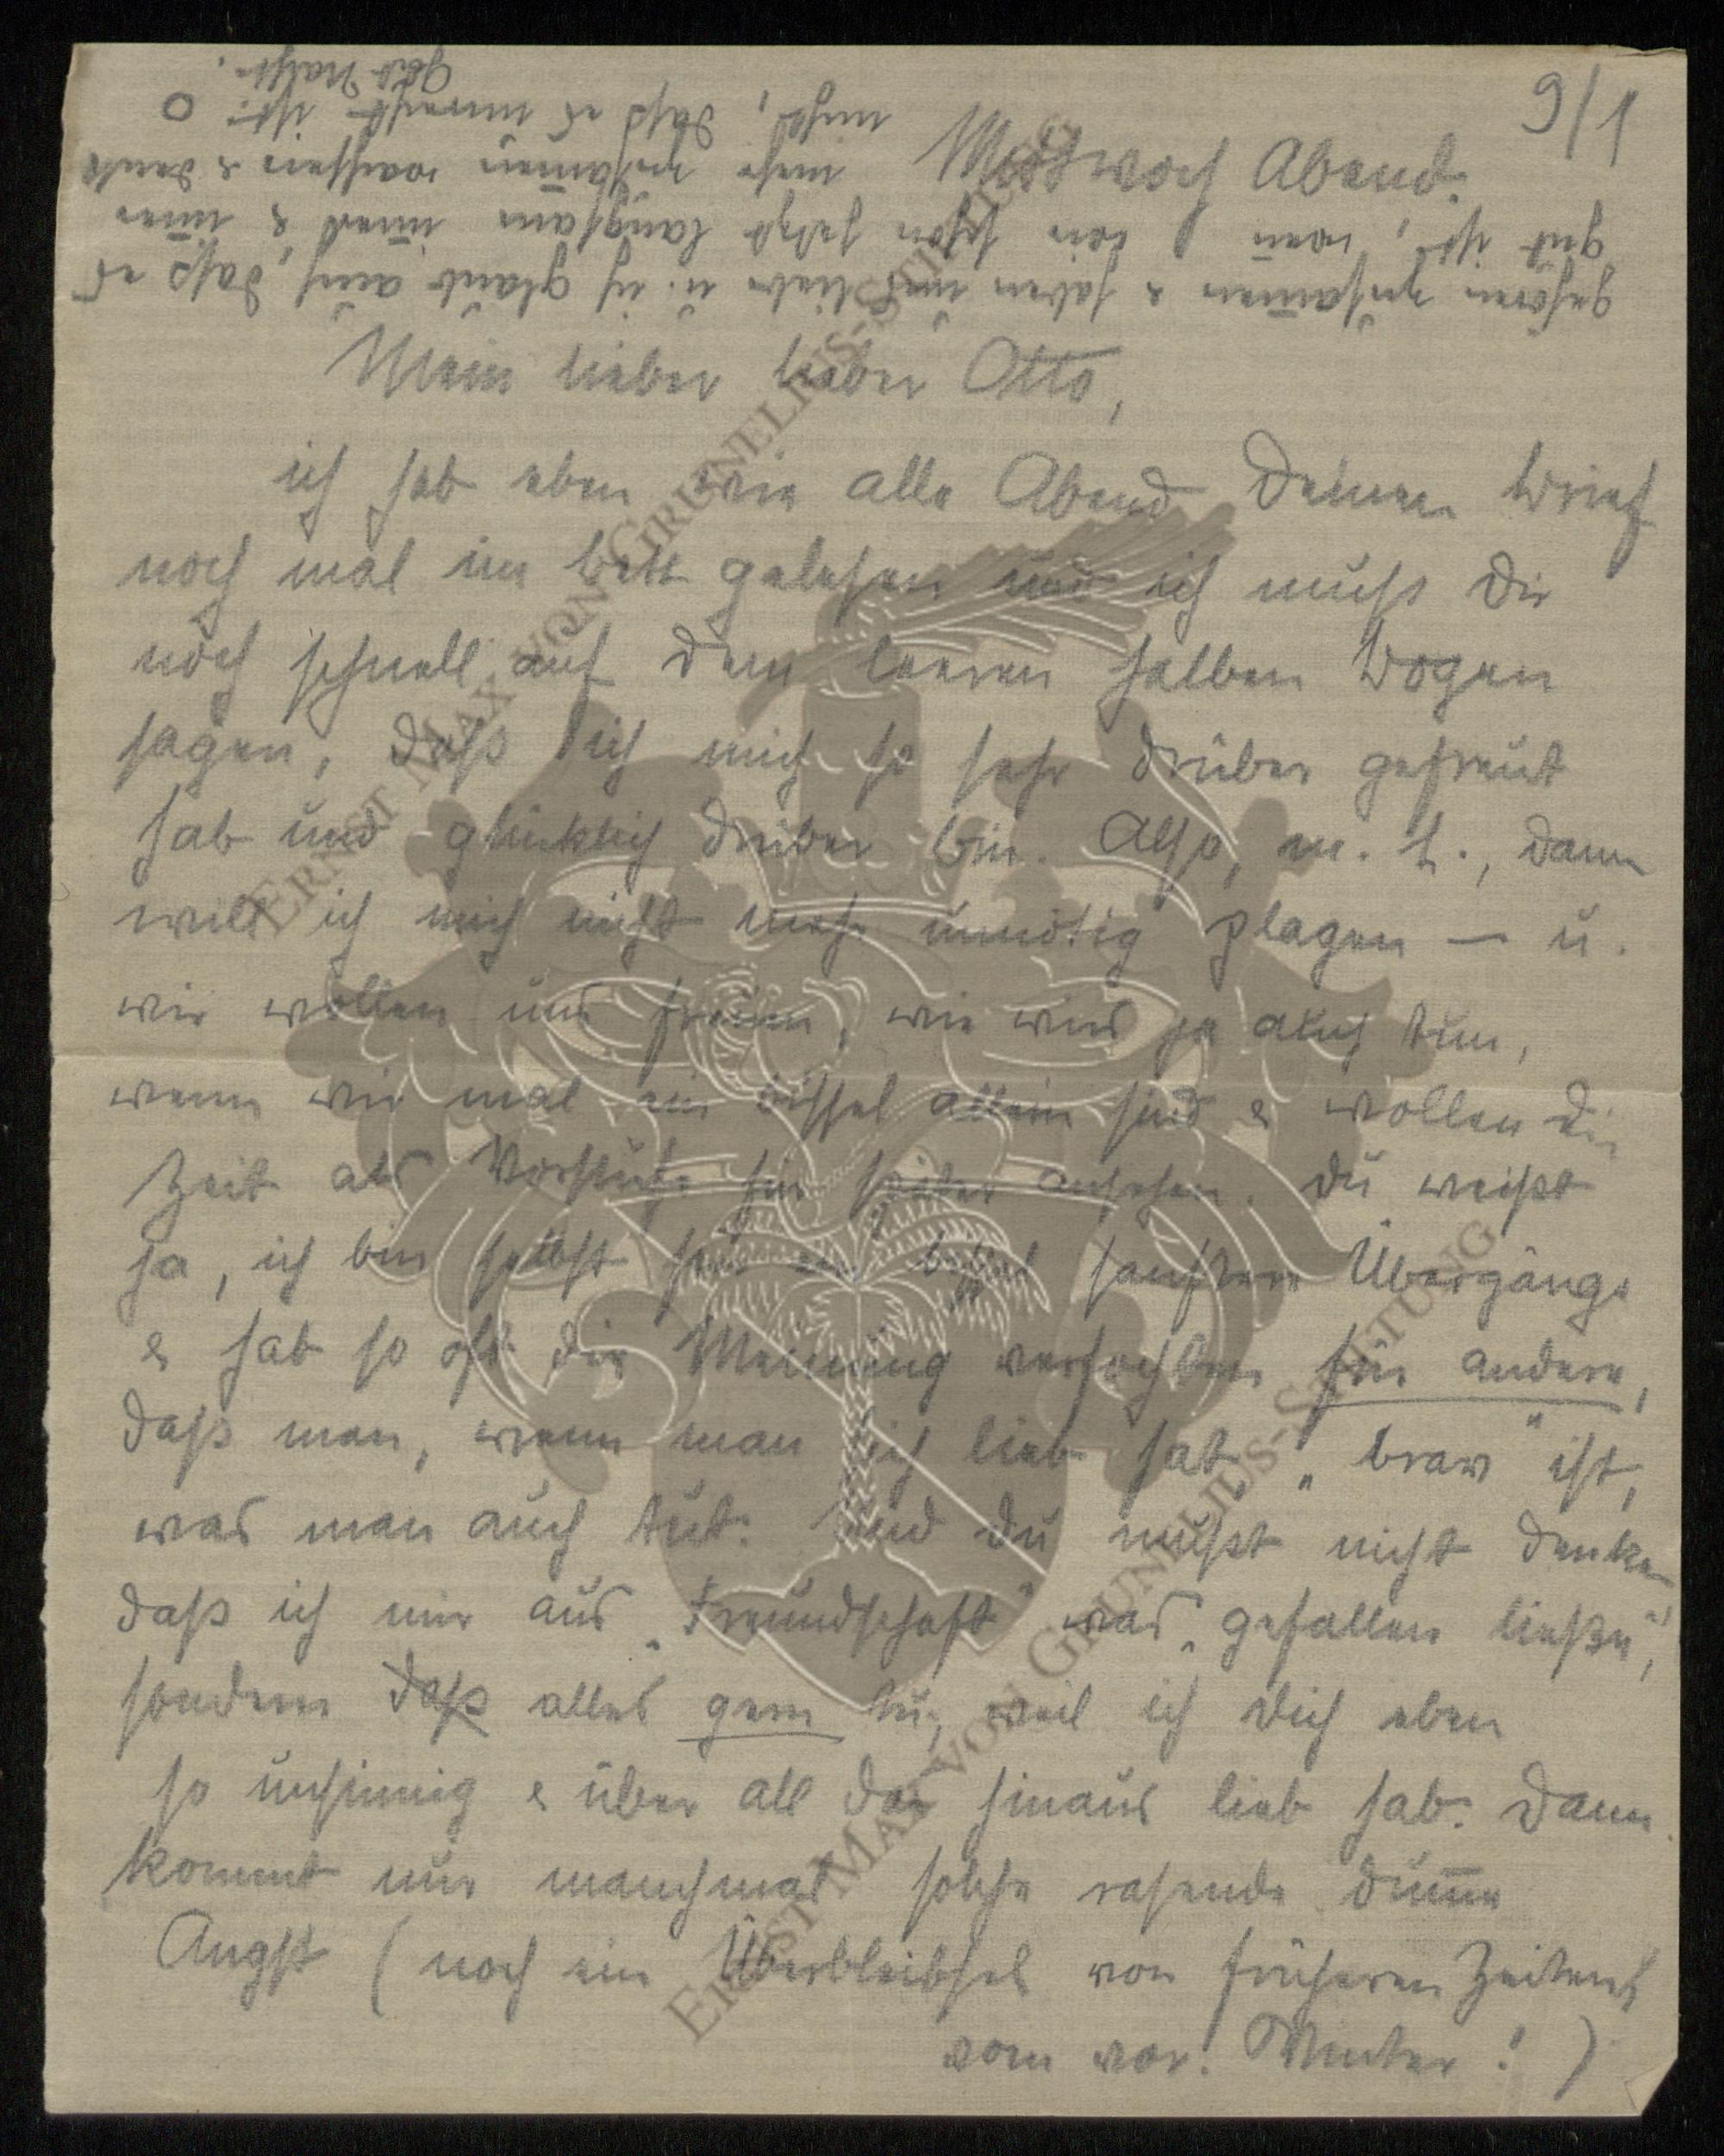 9/1
Mittwoch Abend.
Mein lieber lieber Otto,
ich hab eben wie alle Abend Deinen Brief
noch mal im Bett gelesen und ich muß Dir
noch schnell auf dem leeren halben Bogen
sagen, daß ich mich so sehr drüber gefreut
hab und glücklich drüber bin. Also, m. L., dann
will ich mich nicht mehr unnötig plagen — u.
wir wollen uns freuen, wie wirs ja auch tun,
wenn wir mal ein bissel allein sind & wollen die
Zeit als Vorstufe für später ansehen. Du weißt
ja, ich bin selbst für ein bissel sanftere Übergänge
& hab so oft die Meinung verfochten für andere,
daß man, wenn man sich lieb hat, „brav" ist,
was man auch tut. Und Du mußt nicht denken
daß ich mir aus „Freundschaft" was „gefallen ließe",
sondern daß alles gern tu, weil ich Dich eben
so unsinnig & über all das hinaus lieb hab. Dann
kommt nur manchmal solche rasende dumme
Angst (noch ein Überbleibsel von früheren Zeiten &
vom vor. Winter!)
gehören zusammen & haben uns lieb u. ich glaub auch, daß es
gut ist, wenn wir schon jetzt langsam immer & immer
mehr zusammen wachsen & denk
nicht, daß es unrecht ist.
Gut Nacht.
ERNST MAX VON GRUNELIUS-STIFTUNG
ERNST MAX VON GRUNELIUS-STIFTUNG